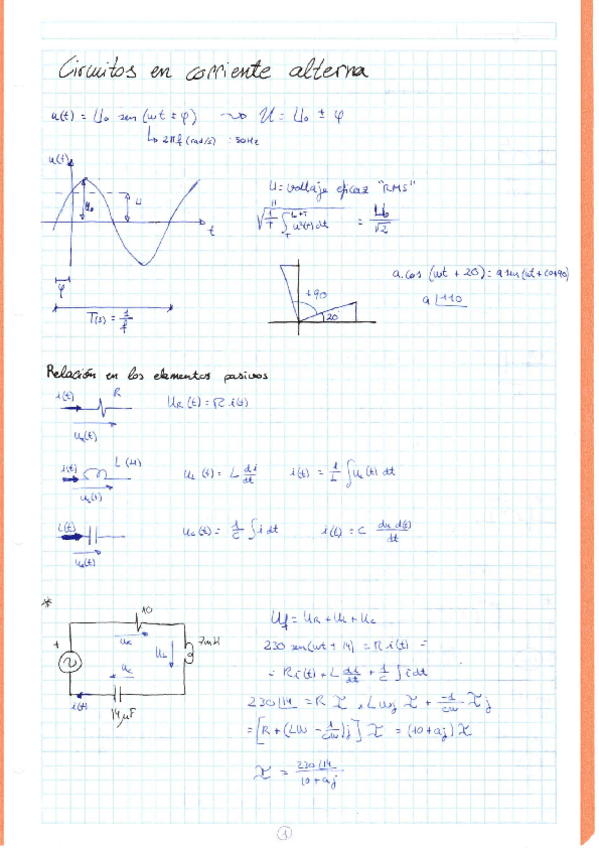 Circuitos en corriente alterna
u(t) = U₀ sen (wt ± φ) ~> U = U₀ ± φ
↳ 2πf (rad/s) : 50Hz
u(t)
U₀
U
t
φ
T(s) = 1/f
U = voltaje eficaz "RMS"
= U₀/√2
+90
20
a.cos (wt + 20) = a sen (wt + 20+90)
a |110
Relación en los elementos pasivos
i(t) R
u_R(t)
U_R (t) = R i(t)
i(t) L (H)
u_L(t)
u_L (t) = L di/dt
i(t) = 1/L ∫ u_L (t) dt
i(t)
u_c(t)
u_c (t) = 1/C ∫ i dt
i(t) = C
*
10
u_R
U_L
7mH
+
~
u_c
i(t)
14μF
U_f = U_R + U_L + U_c
230 sen(wt + 14) = R i(t) =
= R i(t) + L di/dt + 1/C ∫ i dt
230 |14 = R I + L wj I + -1/Cw · I j
= [R + (LW - 1/CW)j] I = (10 + aj) I
I = 230|14 / 10 + aj
1